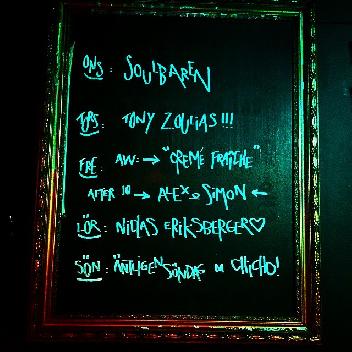 ONS: SOULBAREN
TORS: TONY ZOULIAS!!!
FRE: AW: → "CREMÉ FRAICHE"
AFTER 10 → ALEX & SIMON ←
LÖR: NICLAS ERIKSBERGER♡
SÖN: ÄNTLIGEN SÖNDAG CHICHO!